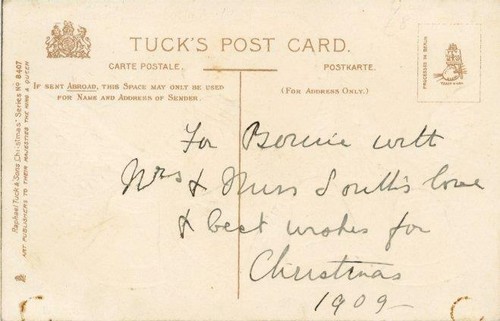 TUCK'S POST CARD.
CARTE POSTALE.
POSTKARTE.
IF SENT ABROAD, THIS SPACE MAY ONLY BE USED
FOR NAME AND ADDRESS OF SENDER.
(FOR ADDRESS ONLY.)
PROCESSED IN BERLIN
Raphael Tuck & Sons' "Christmas" Series No 8407
ART PUBLISHERS TO THEIR MAJESTIES THE KING & QUEEN
For Bonnie with
Mrs & Miss South's love
& best wishes for
Christmas
1909-